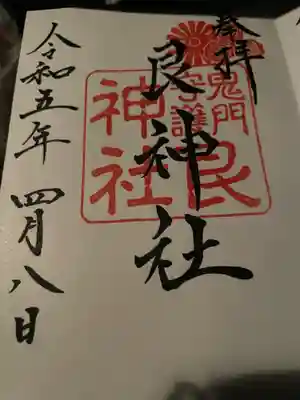 奉拝
艮神社
令和五年 四月八日
鬼門
守護
艮
神社